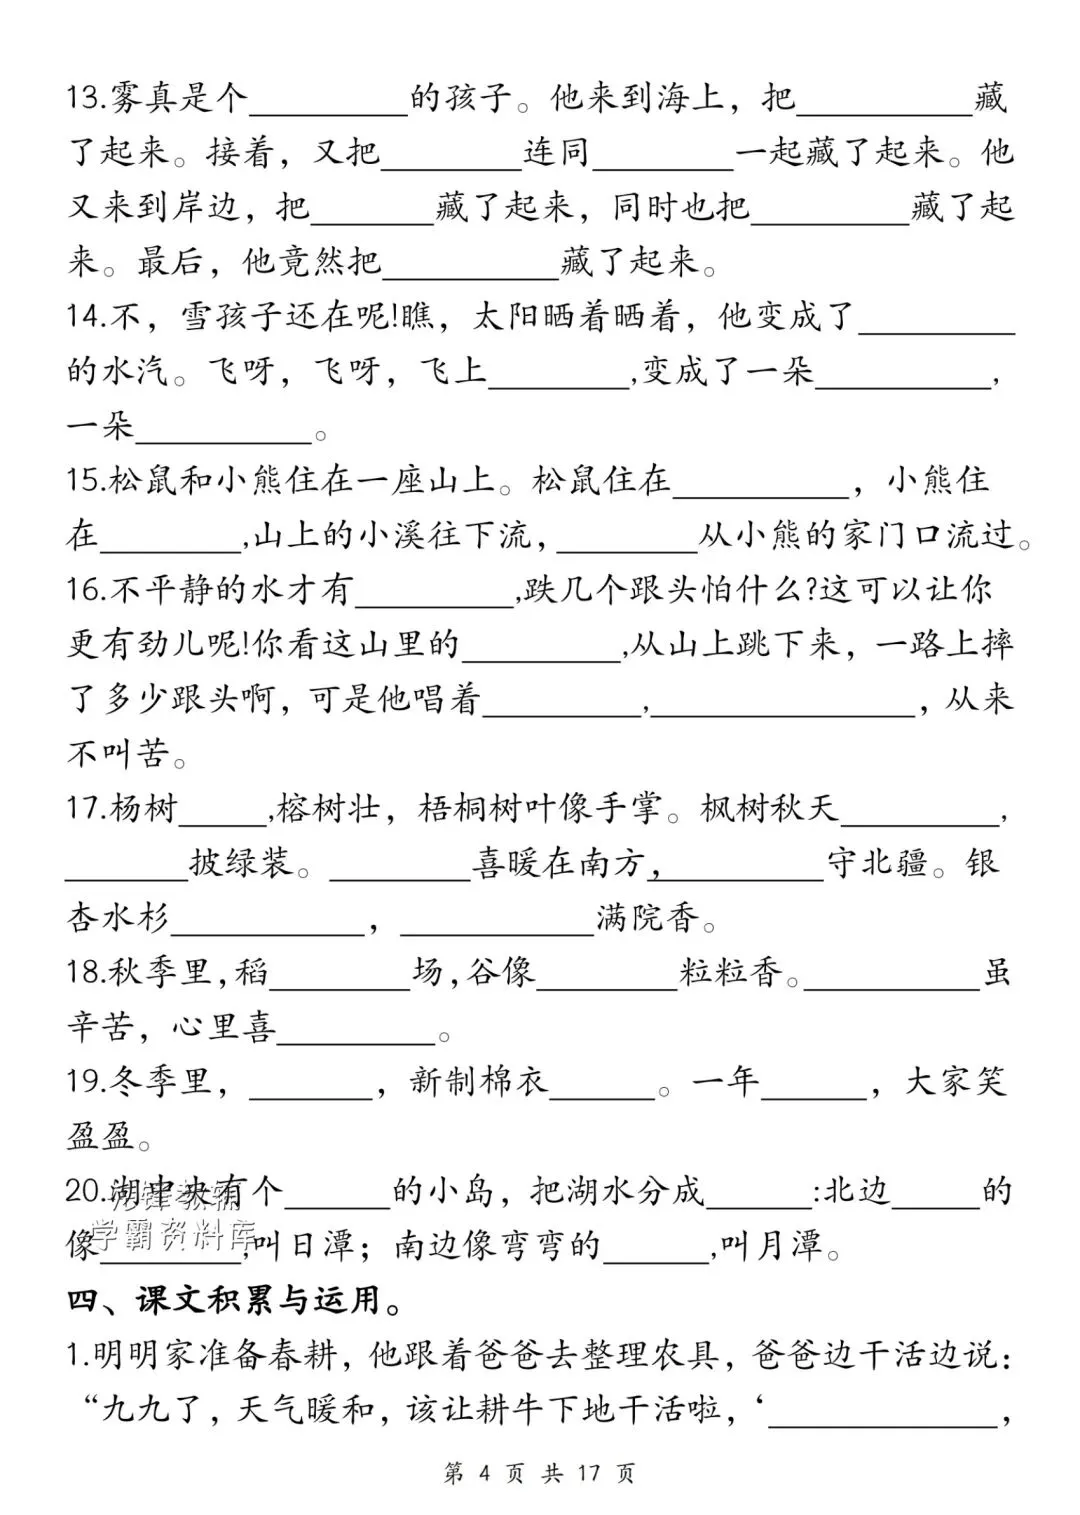 13.雾真是个________的孩子。他来到海上，把________藏
了起来。接着，又把________连同________一起藏了起来。他
又来到岸边，把________藏了起来，同时也把________藏了起
来。最后，他竟然把________藏了起来。
14.不，雪孩子还在呢!瞧，太阳晒着晒着，他变成了________
的水汽。飞呀，飞呀，飞上________,变成了一朵________,
一朵________。
15.松鼠和小熊住在一座山上。松鼠住在________，小熊住
在________,山上的小溪往下流，________从小熊的家门口流过。
16.不平静的水才有________,跌几个跟头怕什么?这可以让你
更有劲儿呢!你看这山里的________,从山上跳下来，一路上摔
了多少跟头啊，可是他唱着________,____________，从来
不叫苦。
17.杨树____,榕树壮，梧桐树叶像手掌。枫树秋天________,
______披绿装。______喜暖在南方，________守北疆。银
杏水杉________，________满院香。
18.秋季里,稻______场,谷像______粒粒香。________虽
辛苦，心里喜________。
19.冬季里，______，新制棉衣_____。一年_____，大家笑
盈盈。
20.湖中央有个_____的小岛，把湖水分成_____:北边____的
像______,叫日潭；南边像弯弯的_____,叫月潭。
学霸资料库
四、课文积累与运用。
1.明明家准备春耕，他跟着爸爸去整理农具，爸爸边干活边说：
“九九了，天气暖和，该让耕牛下地干活啦，‘__________，
第 4 页 共 17 页